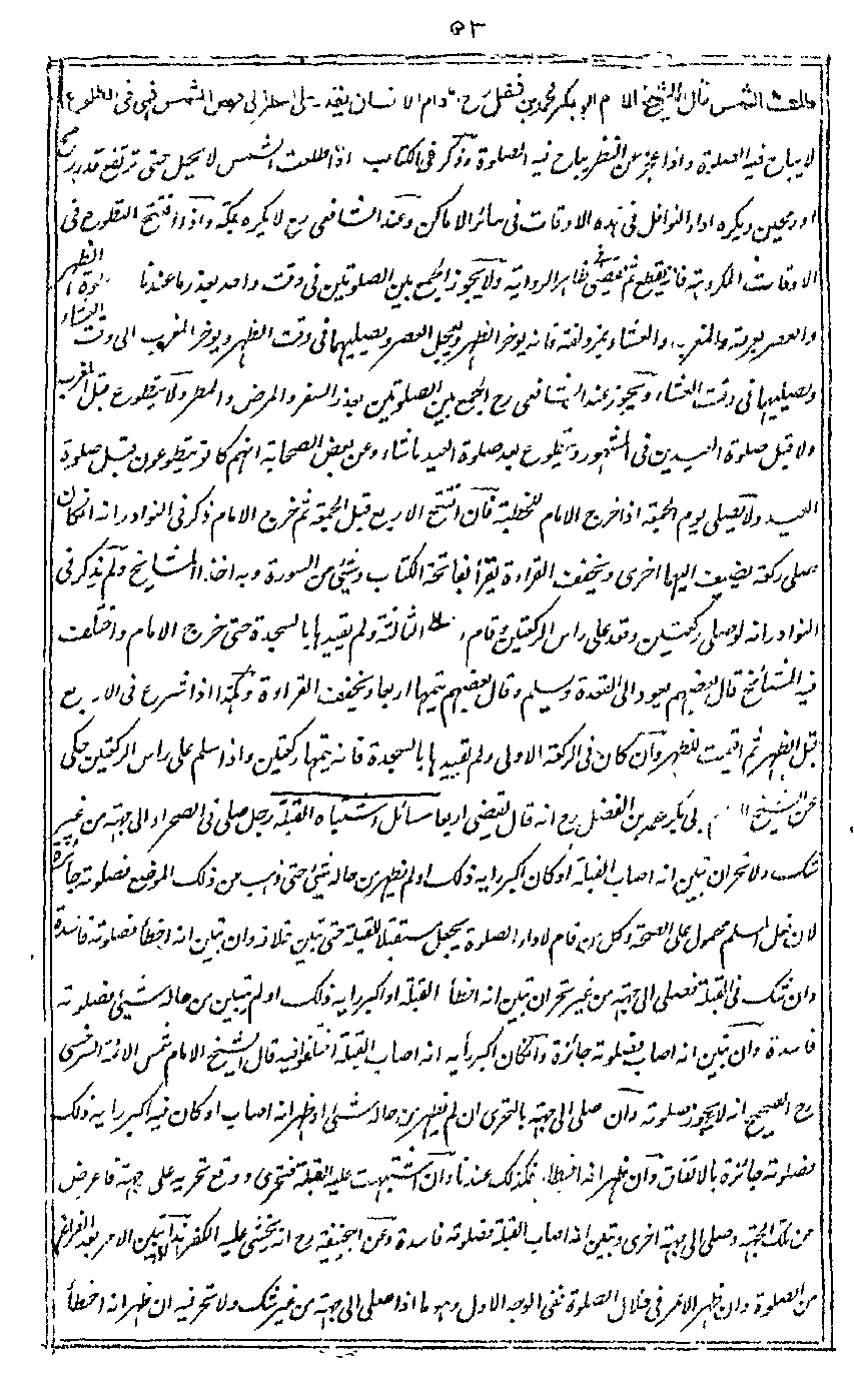 ٥٣
طلعت الشمس قال الشيخ الامام ابو بكر محمد بن فضل رح ما دام الانسان يقدر على النظر الى قرص الشمس فهى فى الطلوع
لا يباح فيه الصلوة واذا عجز عن النظر يباح فيه الصلوة وذكر فى الكتاب اذا طلعت الشمس لا يحل حتى ترتفع قدر رمح
او رمحين ويكره اداء النوافل فى هذه الاوقات فى سائر الاماكن وعند الشافعى رح لا يكره بمكة واذا افتتح التطوع فى
الاوقات المكروهة فانه يقطع ثم يقضى فى ظاهر الرواية ولا يجوز الجمع بين الصلوتين فى وقت واحد بعذر ما عندنا الظهر
والعصر بعرفة والمغرب والعشاء بمزدلفة فانه يوخر الظهر ويعجل العصر ويصليهما فى وقت الظهر ويوخر المغرب الى وقت العشاء
ويصليهما فى وقت العشاء ويجوز عند الشافعى رح الجمع بين الصلوتين بعذر السفر والمرض والمطر ولا يتطوع قبل المغرب
ولا قبل صلوة العيدين فى المشهور ويتطوع بعد صلوة العيد ما شاء وعن بعض الصحابة انهم كانو يتطوعون قبل صلوة
العيد ولا يصلى يوم الجمعة اذا خرج الامام للخطبة فان افتتح الاربع قبل الجمعة ثم خرج الامام ذكر فى النوادر انه ان كان
صلى ركعة يضيف اليها اخرى ويخفف القراءة يقرأ بفاتحة الكتاب وشئى من السورة وبه اخذ المشايخ ولم يذكر فى
النوادر انه لو صلى ركعتين وقعد على راس الركعتين وقام الى الثالثة ولم يقيدها بالسجدة حتى خرج الامام واختلف
فيه المشائخ قال بعضهم يعود الى القعدة ويسلم وقال بعضهم يتمها اربعا ويخفف القراءة وهكذا اذا شرع فى الاربع
قبل الظهر ثم اقيمت للظهر وان كان فى الركعة الاولى ولم يقيدها بالسجدة فانه يتمها ركعتين واذا سلم على راس الركعتين حكى
عن الشيخ ابى بكر محمد بن الفضل رح انه قال يقضى اربعا مسائل اشتباه القبلة رجل صلى فى الصحراء الى جهة من غير
شك ولا تحر ان تبين انه اصاب القبلة او كان اكبر رايه ذلك او لم يظهر من حاله شئى حتى ذهب من ذلك الموضع فصلوته جائزة
لان فعل المسلم محمول على الصحة وكل من قام لاداء الصلوة يجعل مستقبلا للقبلة حتى تبين خلافه وان تبين انه اخطأ فصلوته فاسدة
وان شك فى القبلة فصلى الى جهة من غير تحر ان تبين انه اخطأ القبلة او اكبر رايه ذلك او لم تبين من حاله شيئى فصلوته
فاسدة وان تبين انه اصاب فصلوته جائزة وان كان اكبر رأيه انه اصاب القبلة اختلفوا فيه قال الشيخ الامام شمس الائمة السرخسى
رح الصحيح انه لا يجوز صلوته وان صلى الى جهة بالتحرى ان لم يظهر من حاله شئى او ظهر انه اصاب او كان فيه اكبر رايه ذلك
فصلوته جائزة بالاتفاق وان ظهر انه اخطأ فكذلك عندنا وان اشتبهت عليه القبلة فتحرى ووقع تحريه على جهة فاعرض
عن تلك الجهة وصلى الى جهة اخرى وتبين انه اصاب القبلة فصلوته فاسدة وعن ابيحنيفة رح انه يخشى عليه الكفر هذا اذا تبين الامر بعد الفراغ
من الصلوة وان ظهر الامر فى خلال الصلوة ففى الوجه الاول وهو ما اذا صلى الى جهة من غير شك ولا تحر فيه ان ظهر انه اخطأ